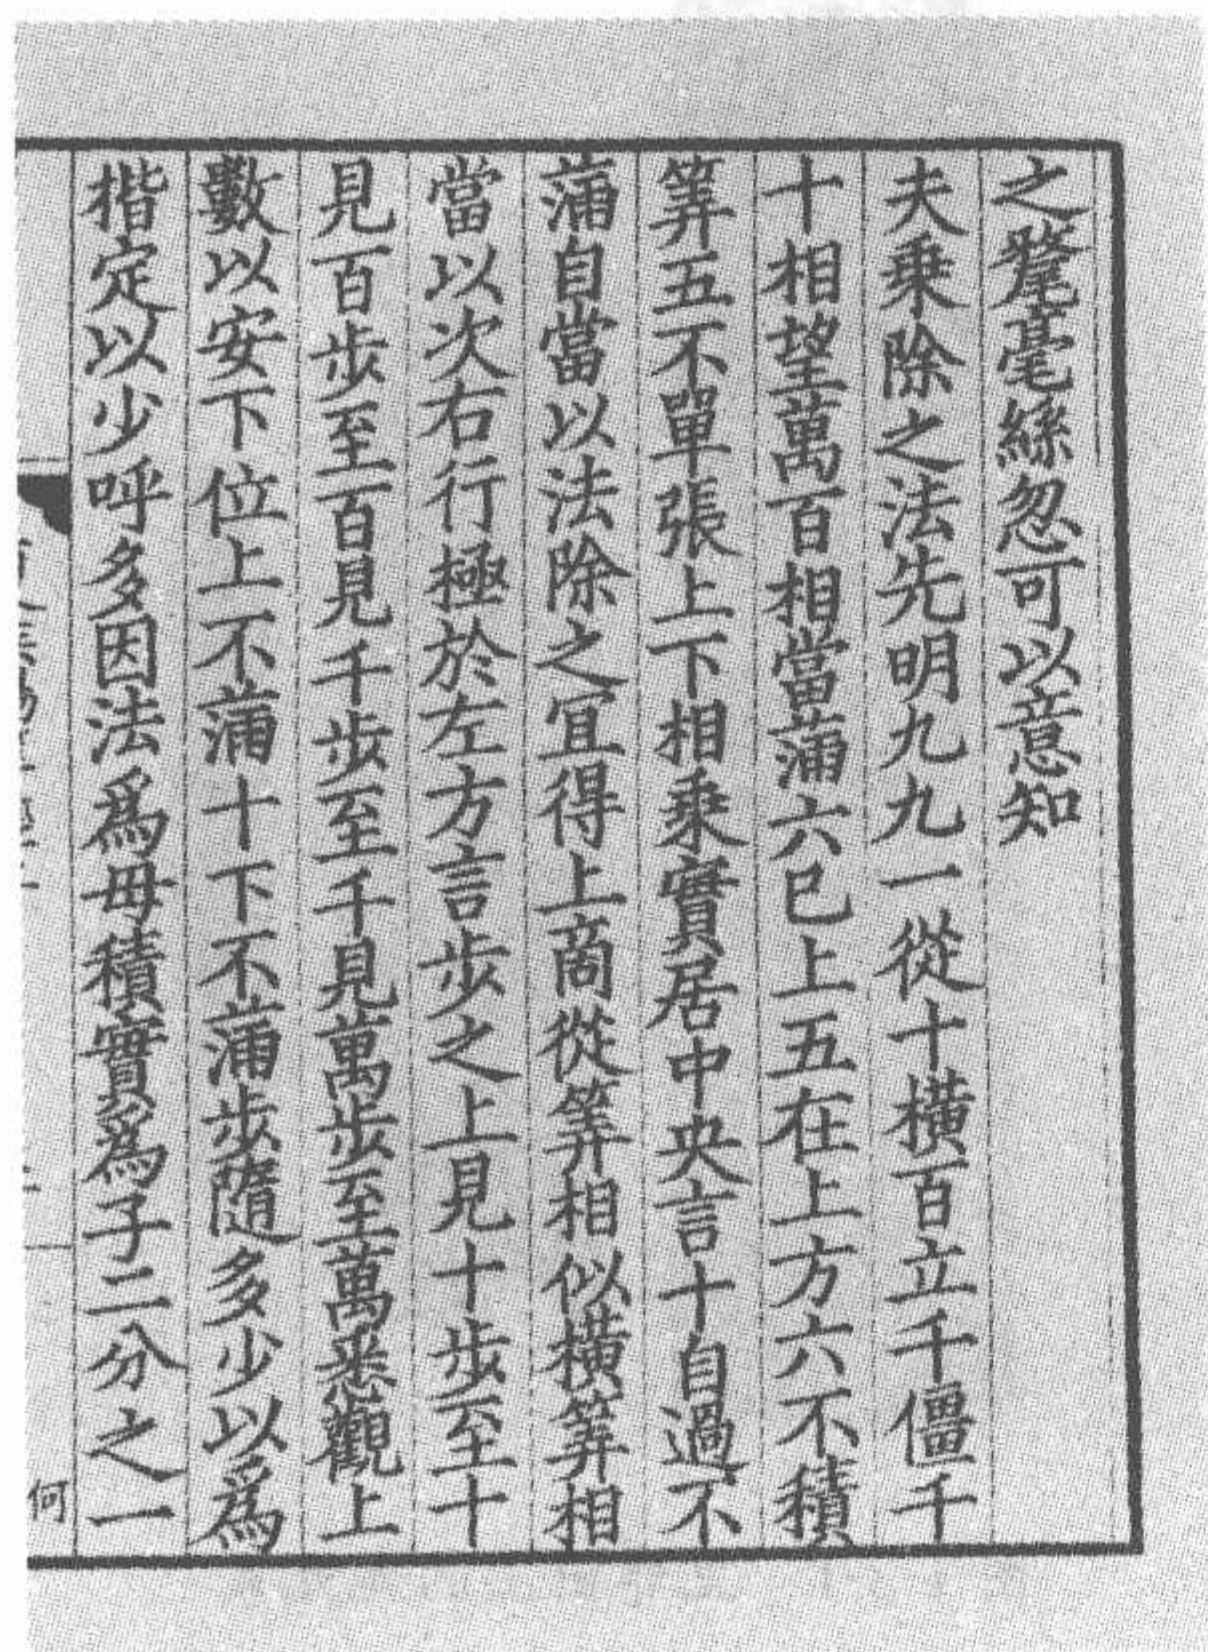 之氂毫絲忽可以意知
夫乗除之法先明九九一從十橫百立千僵千
十相望萬百相當蒲六已上五在上方六不積
筭五不單張上下相乗實居中央言十自過不
蒲自當以法除之冝得上商從筭相似橫筭相
當以次右行極於左方言步之上見十步至十
見百步至百見千步至千見萬步至萬悉觀上
數以安下位上不蒲十下不蒲步隨多少以爲
楷定以少呼多因法爲母積實爲子二分之一
何